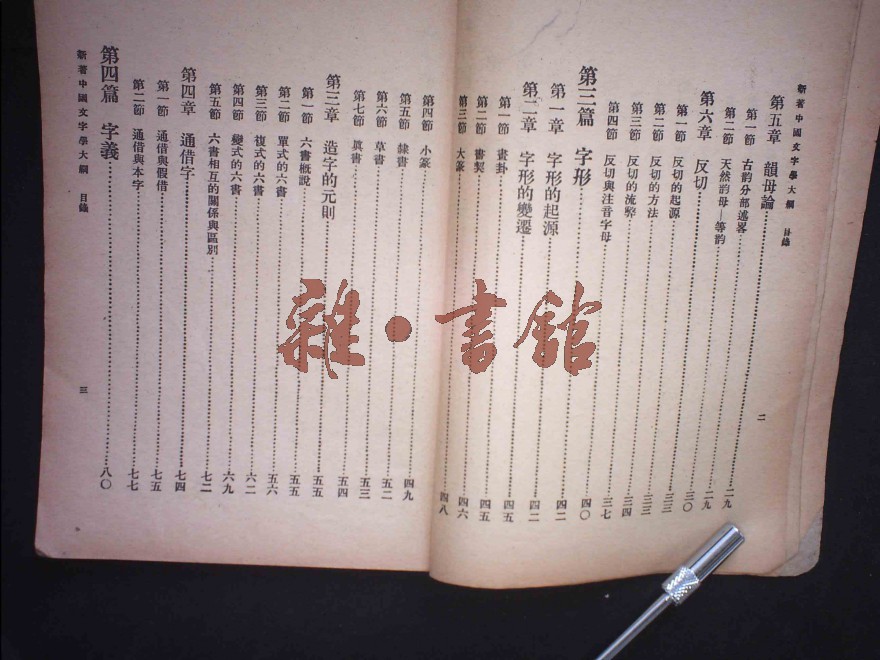 新著中國文字學大綱 目錄 二
第五章 韻母論……二九
第一節 古韵分部述畧……二九
第二節 天然韵母—等韵……三〇
第六章 反切……三三
第一節 反切的起源……三三
第二節 反切的方法……三四
第三節 反切的流弊……三七
第四節 反切與注音字母……四〇
第三篇 字形……四二
第一章 字形的起源……四二
第二章 字形的變遷……四五
第一節 畫卦……四五
第二節 書契……四六
第三節 大篆……四八
第四節 小篆……四九
第五節 隸書……五二
第六節 草書……五三
第七節 眞書……五四
第三章 造字的元則……五五
第一節 六書概說……五五
第二節 單式的六書……五六
第三節 複式的六書……六二
第四節 變式的六書……六九
第五節 六書相互的關係與區別……七二
第四章 通借字……七四
第一節 通借與假借……七五
第二節 通借與本字……七七
第四篇 字義……八〇
新著中國文字學大綱 目錄 三
雜·書館